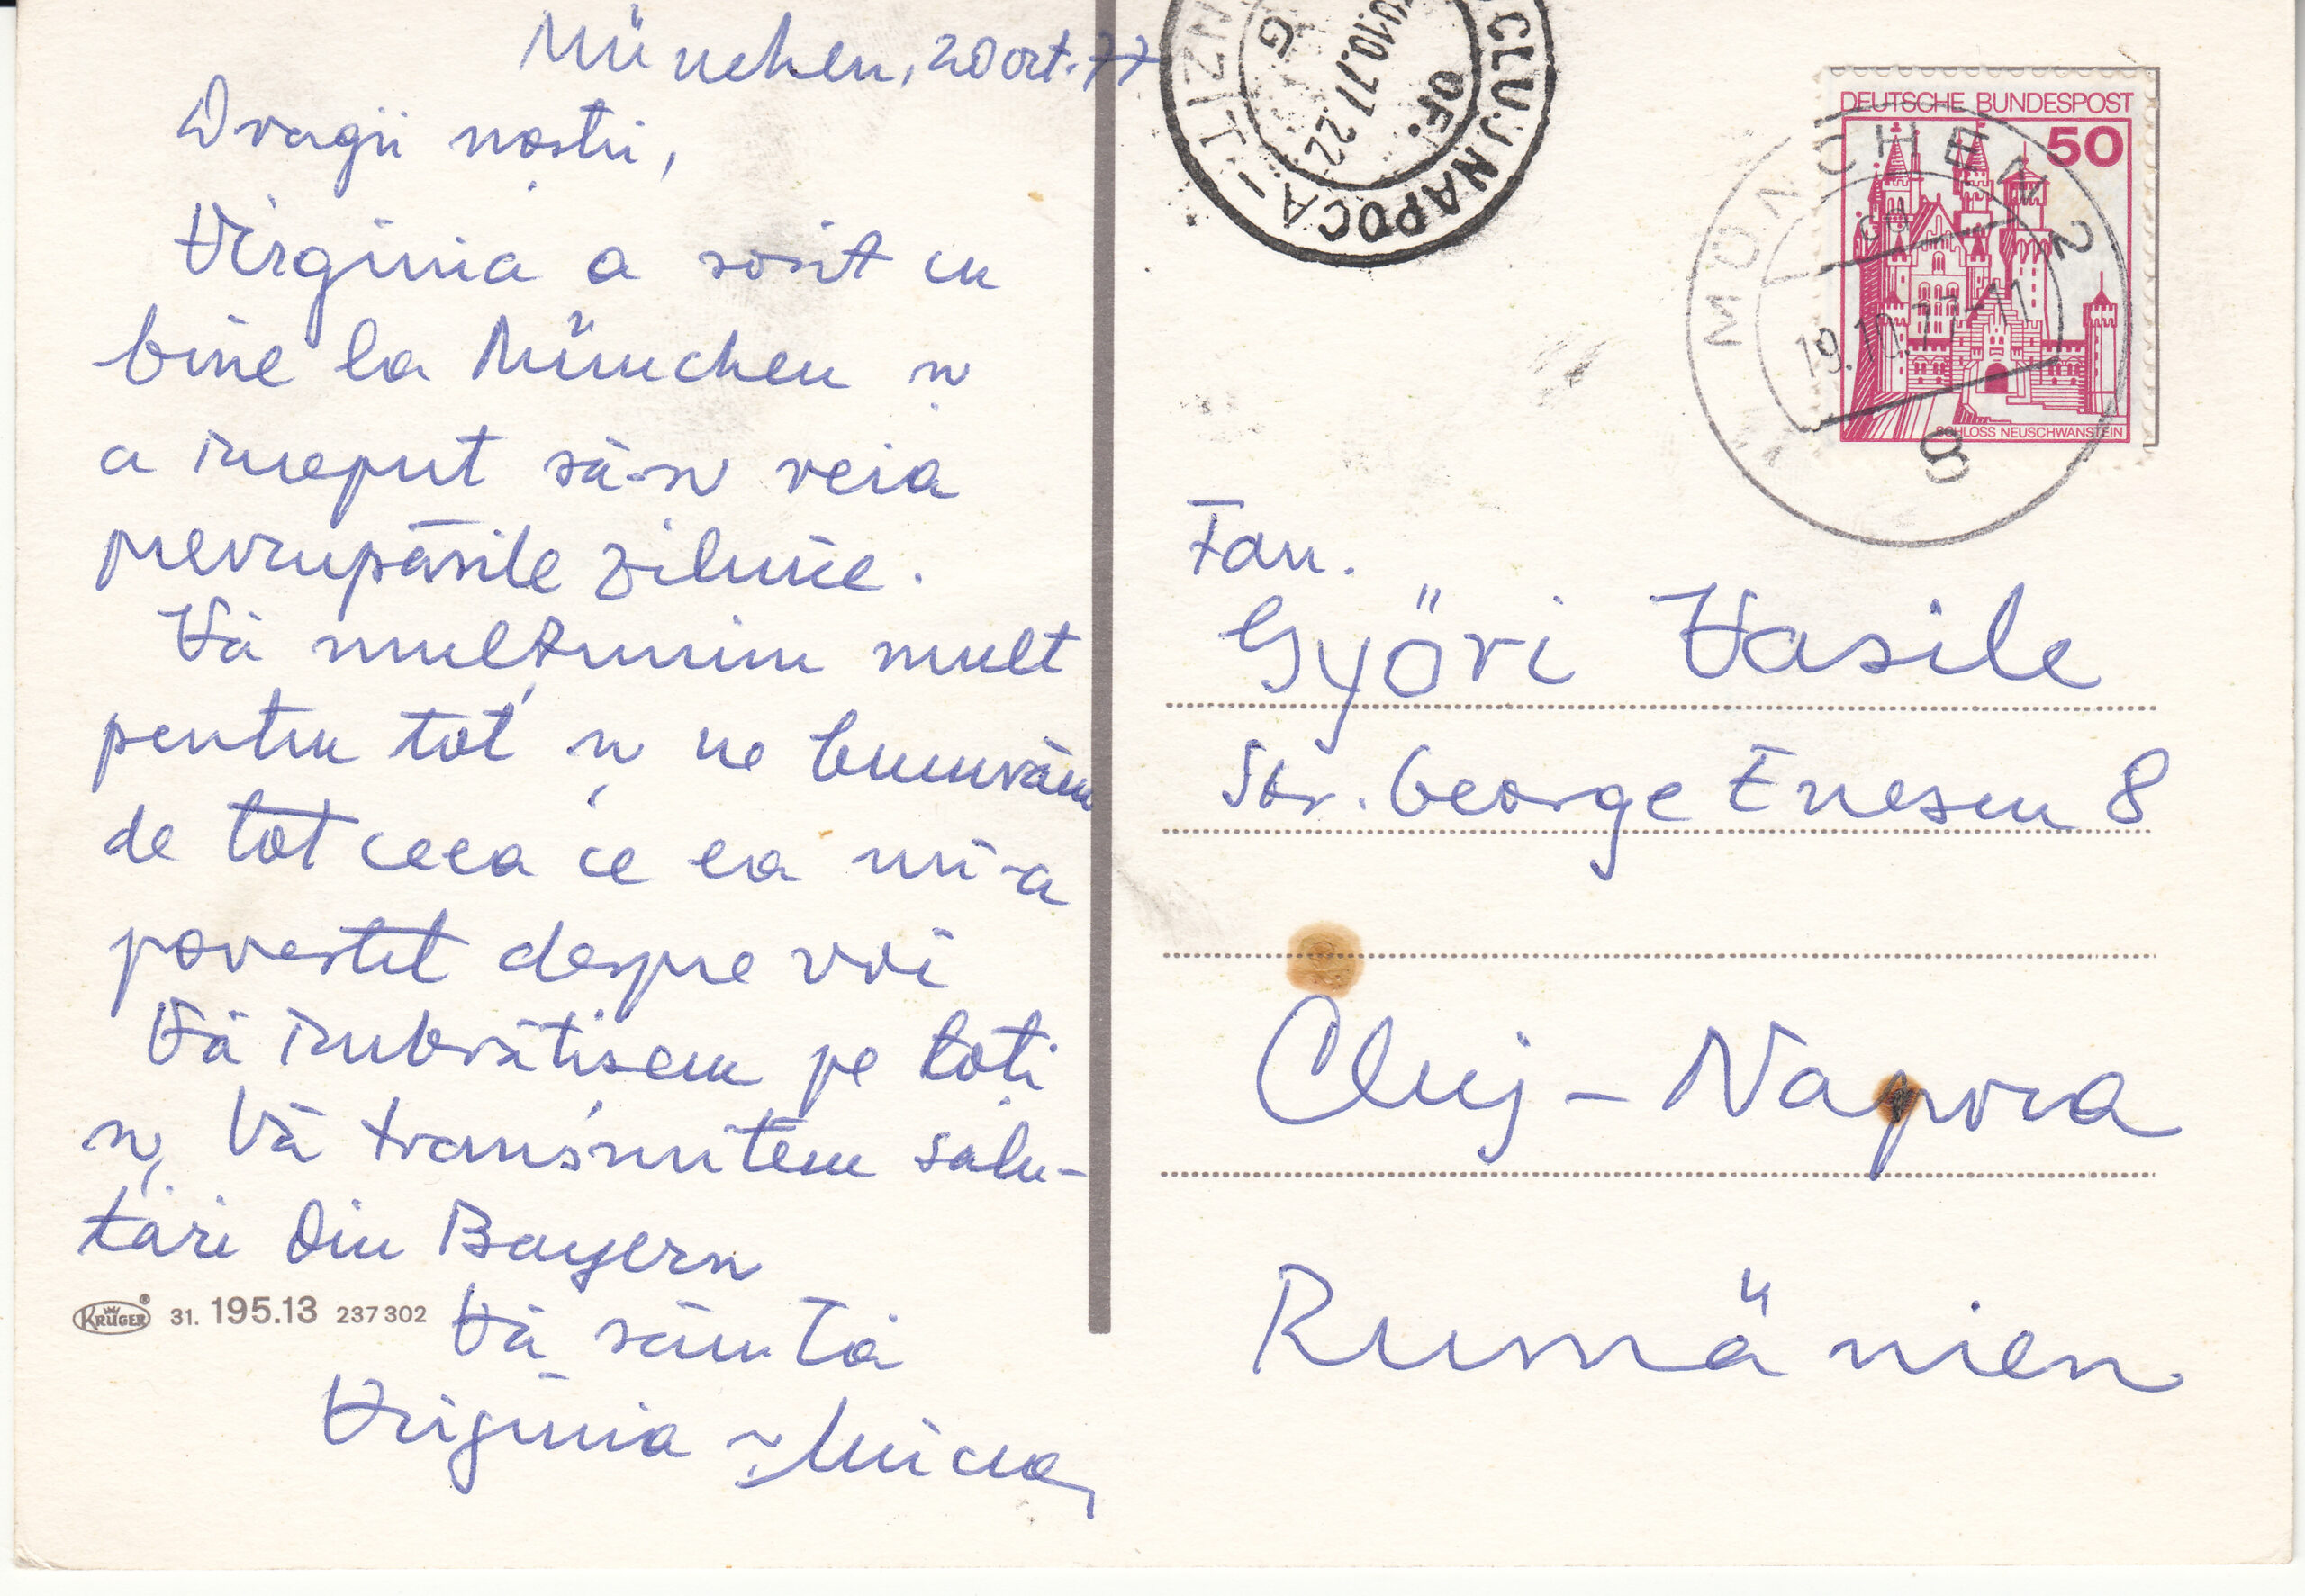 München, 20 oct. 77
Dragii noștri,
Virginia a sosit cu
bine la München și
a început să-și reia
preocupările zilnice.
Vă mulțumim mult
pentru tot și ne bucurăm
de tot ceea ce ea mi-a
povestit despre voi
Vă îmbrățișem pe toți
și Vă transmitem salu-
tări din Bayern
Vă sărută
Virginia și Mircea
KRÜGER® 31. 195.13 237 302
CLUJ NAPOCA
OF.
10.77.22
DEUTSCHE BUNDESPOST
50
SCHLOSS NEUSCHWANSTEIN
MÜNCHEN 2
cd
19.10.77-11
8
Fam.
Győri Vasile
Str. George Enescu 8
Cluj-Napoca
Rumänien